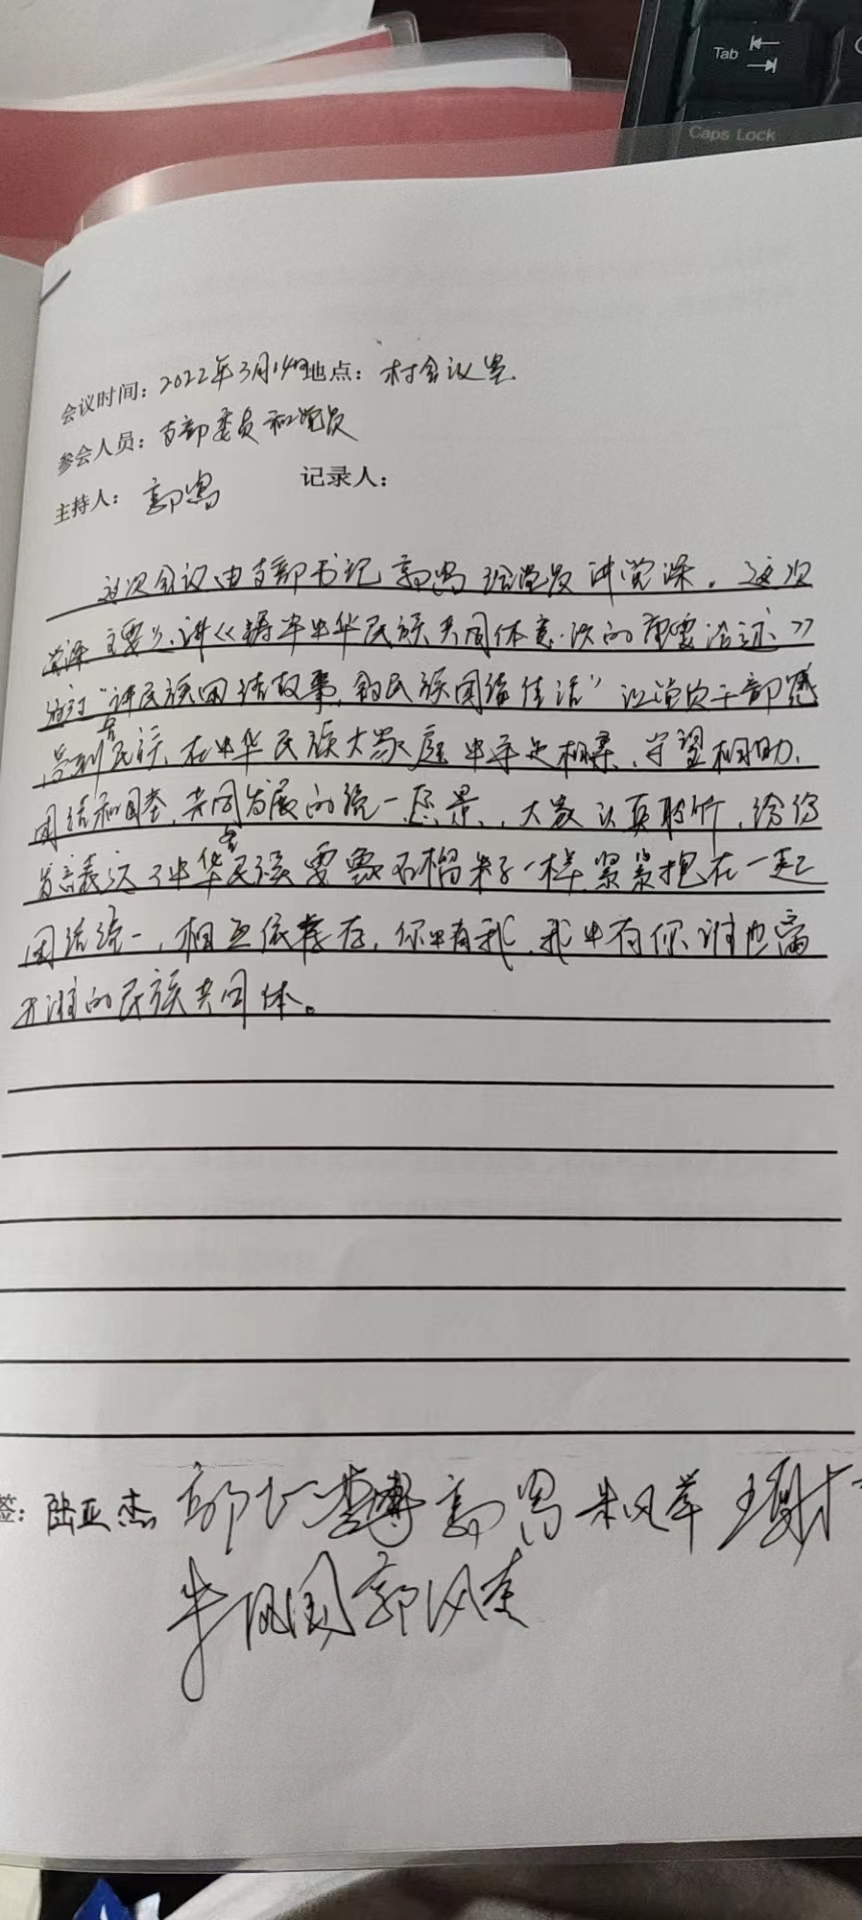 Tab
Caps Lock
会议时间：2022年3月14日 地点：村会议室
参会人员：支部委员和党员
主持人：郭 记录人：
这次会议由支部书记郭 给党员讲党课。这次
党课主要讲《铸牢中华民族共同体意识的重要论述》
通过“讲民族团结故事，民族团结佳话”让党员干部感
受到各民族在中华民族大家庭中手足相亲、守望相助、
团结和睦、共同发展的统一愿景，大家认真聆听，
发言表达了中华各民族要象石榴籽一样紧紧抱在一起
团结统一，相互依存，你中有我，我中有你、谁也离
不谁的民族共同体。
签：陆亚杰 郭 朱凤萍 王
朱凤国 郭凤